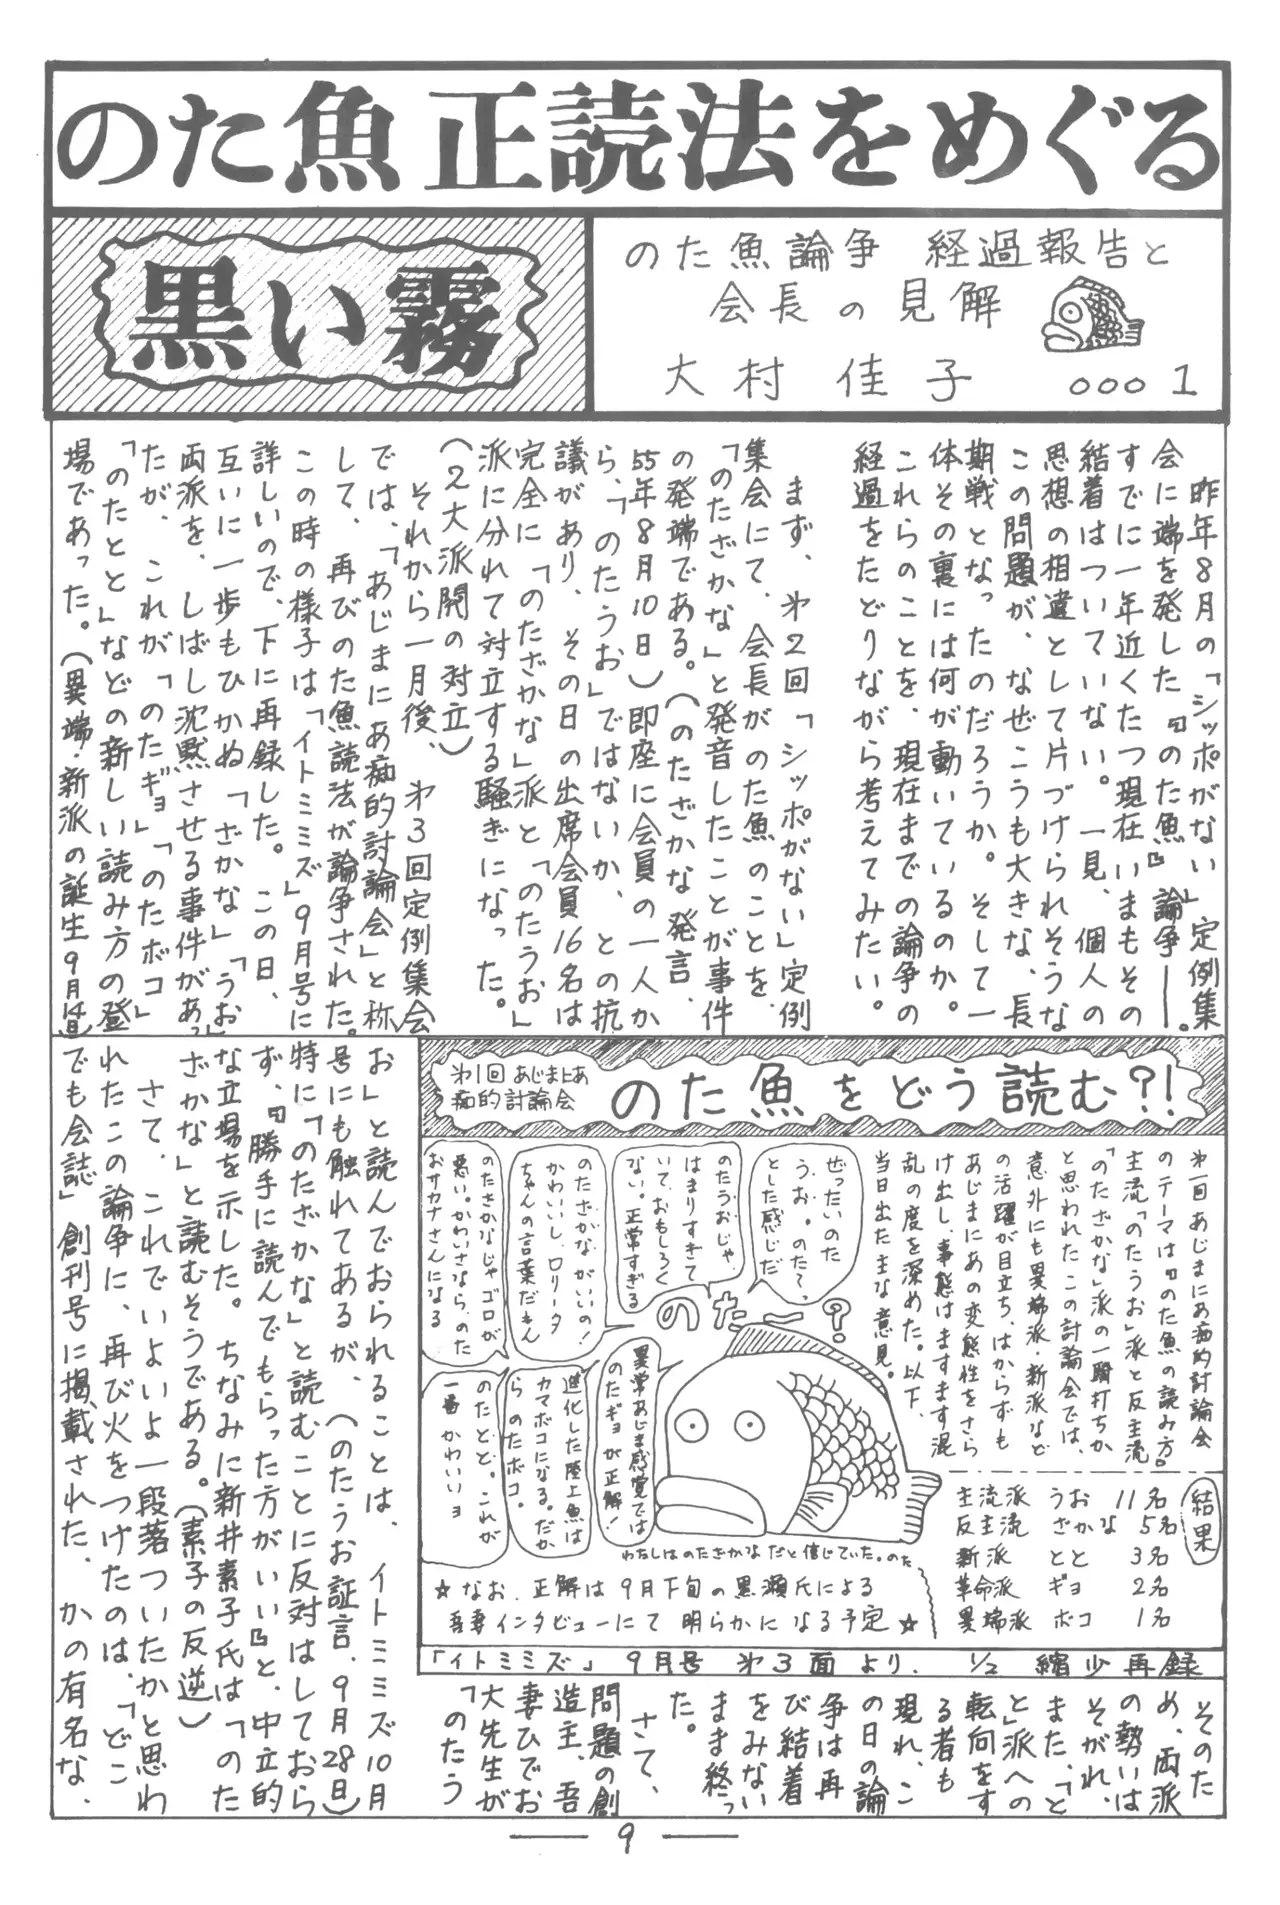 のた魚正読法をめぐる
黒い霧
のた魚論争 経過報告と
会長の見解
大村佳子 0001
昨年8月の「シッポがない」定例集
会に端を発した『のた魚』論争――。
すでに一年近くたつ現在いまもその
結着はついていない。一見、個人の
思想の相違として片づけられそうな
この問題が、なぜこうも大きな、長
期戦となったのだろうか。そして一
体その裏には何が動いているのか。
これらのことを、現在までの論争の
経過をたどりながら考えてみたい。
まず、第2回「シッポがない」定例
集会にて、会長がのた魚のことを、
「のたざかな」と発音したことが事件
の発端である。(のたざかな発言、
55年8月10日)即座に会員の一人か
ら、「のたうお」ではないか、との抗
議があり、その日の出席会員16名は
完全に「のたざかな」派と「のたうお」
派に分れて対立する騒ぎになった。
(2大派閥の対立)
それから一月後、第3回定例集会
では、「あじまにあ痴的討論会」と称
して、再びのた魚読法が論争された。
この時の様子は「イトミミズ」9月号に
詳しいので、下に再録した。この日、
互いに一歩もひかぬ「ざかな」「うお」
両派を、しばし沈黙させる事件があっ
たが、これが「のたギョ」「のたボコ」
「のたとと」などの新しい読み方の登
場であった。(異端・新派の誕生9月14日)
第1回あじまにあ
痴的討論会
のた魚をどう読む?!
第一回あじまにあ痴的討論会
のテーマは『のた魚の読み方』。
主流「のたうお」派と反主流
「のたざかな」派の一騎打ちか
と思われたこの討論会では、
意外にも異端派・新派など
の活躍が目立ち、はからずも
あじまにあの変態性をさら
け出し、事態はますます混
乱の度を深めた。以下、
当日出た主な意見。
ぜったいのた
うお。のた~
とした感じだ
のたうおじゃ
はまりすぎて
いて、おもしろく
ない。正常すぎる
のたざかながいいの!
かわいいし、ロリータ
ちゃんの言葉だもん
のたさかなじゃゴロが
悪い。かわいさなら、のた
おサカナさんになる
のたー?
異常あじま感覚では
のたギョが正解!
進化した陸上魚は
カマボコになる。だか
らのたボコ。
のたとと。これが
一番かわいいヨ
わたしはのたざかなだと信じていた。のた
結果
主流派 うお 11名
反主流 ざかな 5名
新派 とと 3名
革命派 ギョ 2名
異端派 ボコ 1名
☆なお、正解は9月下旬の黒瀬氏による
吾妻インタビューにて明らかになる予定☆
「イトミミズ」9月号 第3面より、1/2縮少再録
そのた
め、両派
の勢いは
そがれ、
また、「と
と」派への
転向をす
る者も
現れ、こ
の日の論
争は再
び結着
をみない
まま終っ
た。
さて、
問題の創
造主、吾
妻ひでお
大先生が
「のたう
お」と読んでおられることは、イトミミズ10月
号にも触れてあるが、(のたうお証言、9月28日)
特に「のたざかな」と読むことに反対はしておら
ず、『勝手に読んでもらった方がいい』と、中立的
な立場を示した。ちなみに新井素子氏は「のた
ざかな」と読むそうである。(素子の反逆)
さて、これでいよいよ一段落ついたかと思わ
れたこの論争に、再び火をつけたのは、「どこ
でも会誌」創刊号に掲載された、かの有名な、
9